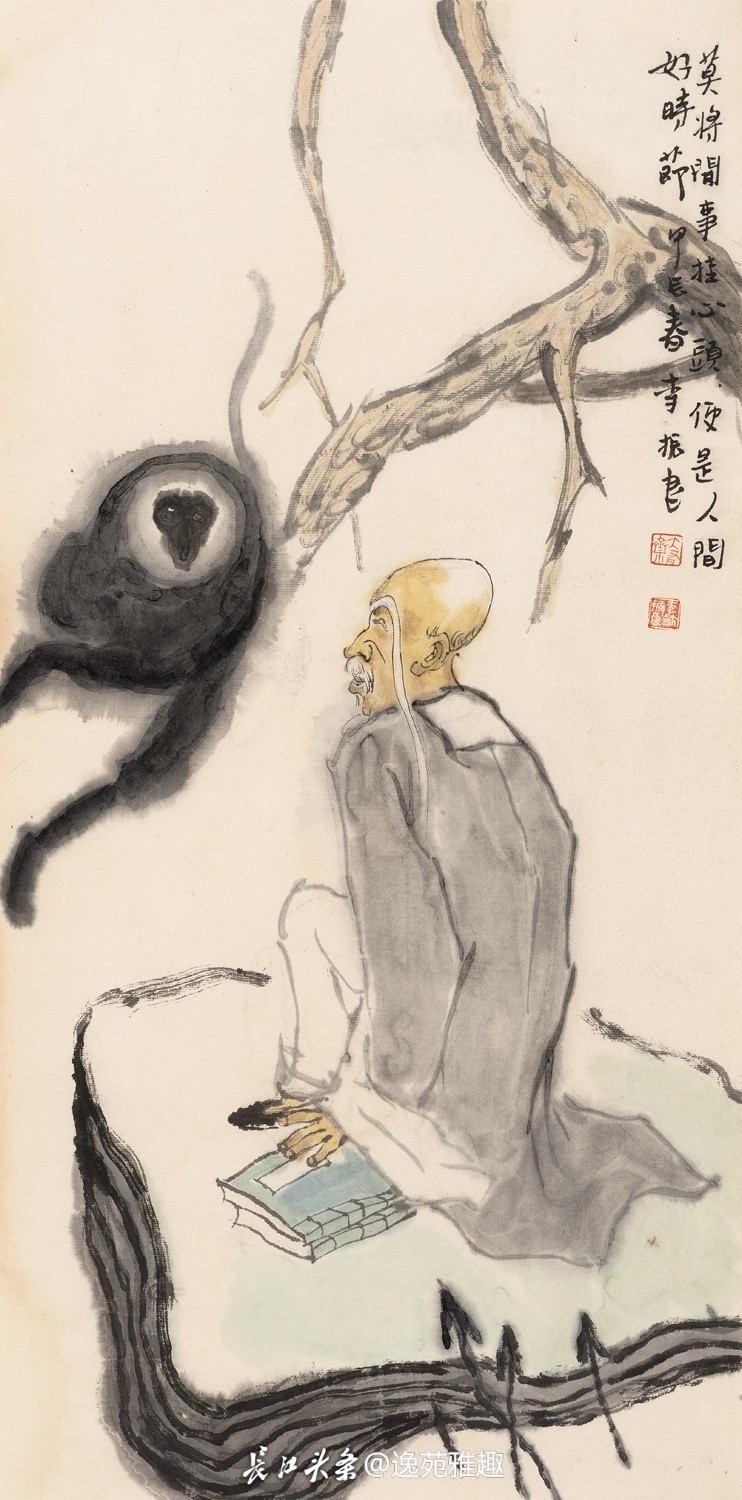 莫将閒事挂心頭便是人間
好時節 甲辰春 李振
长江头条@逸苑雅趣